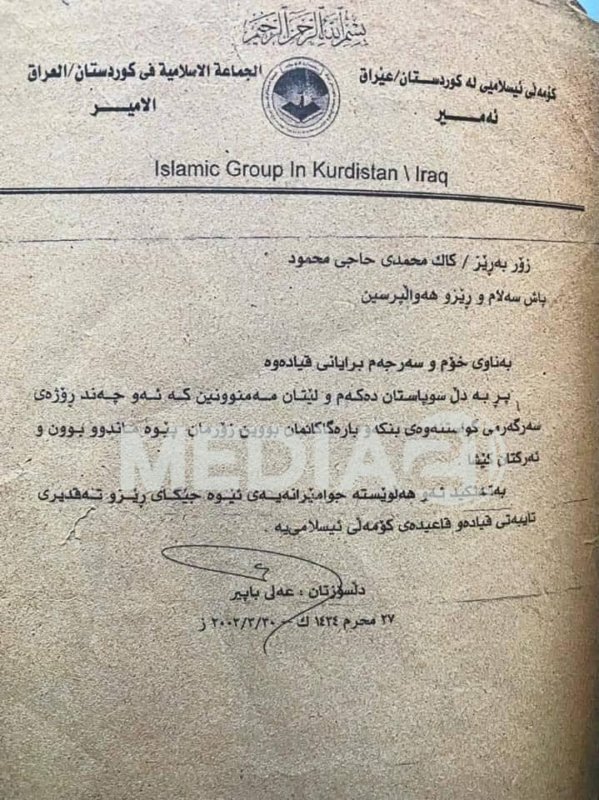 بسم الله الرحمن الرحيم
كۆمەڵی ئیسلامیی لە كوردستان/عێراق
ئەمیر
الجماعة الاسلامية فى كوردستان/العراق
الامير
Islamic Group In Kurdistan \ Iraq
زۆر بەڕێز / كاك محمدی حاجی محمود
پاش سەلام و ڕێزو هەواڵپرسین
بەناوی خۆم و سەرجەم برایانی قیادەوە
پڕ بە دڵ سوپاستان دەكەم و لێتان مەمنوونین كە ئەو چەند ڕۆژەی
سەرگەرمی گواستنەوەی بنكە و بارەگاكانمان بووین زۆرمان پێوە ماندوو بوون و
ئەركتان كێشا
بەتەئكید ئەو هەڵوێستە جوامێرانەیەی ئێوە جێگای ڕێزو تەقدیری
تایبەتی قیادەو قاعیدەی كۆمەڵی ئیسلامی‌یە .
دڵسۆزتان : عەلی باپیر
٢٧ محرم ١٤٢٤ ك – ٢٠٠٣/٣/٣٠ ز
MEDIA